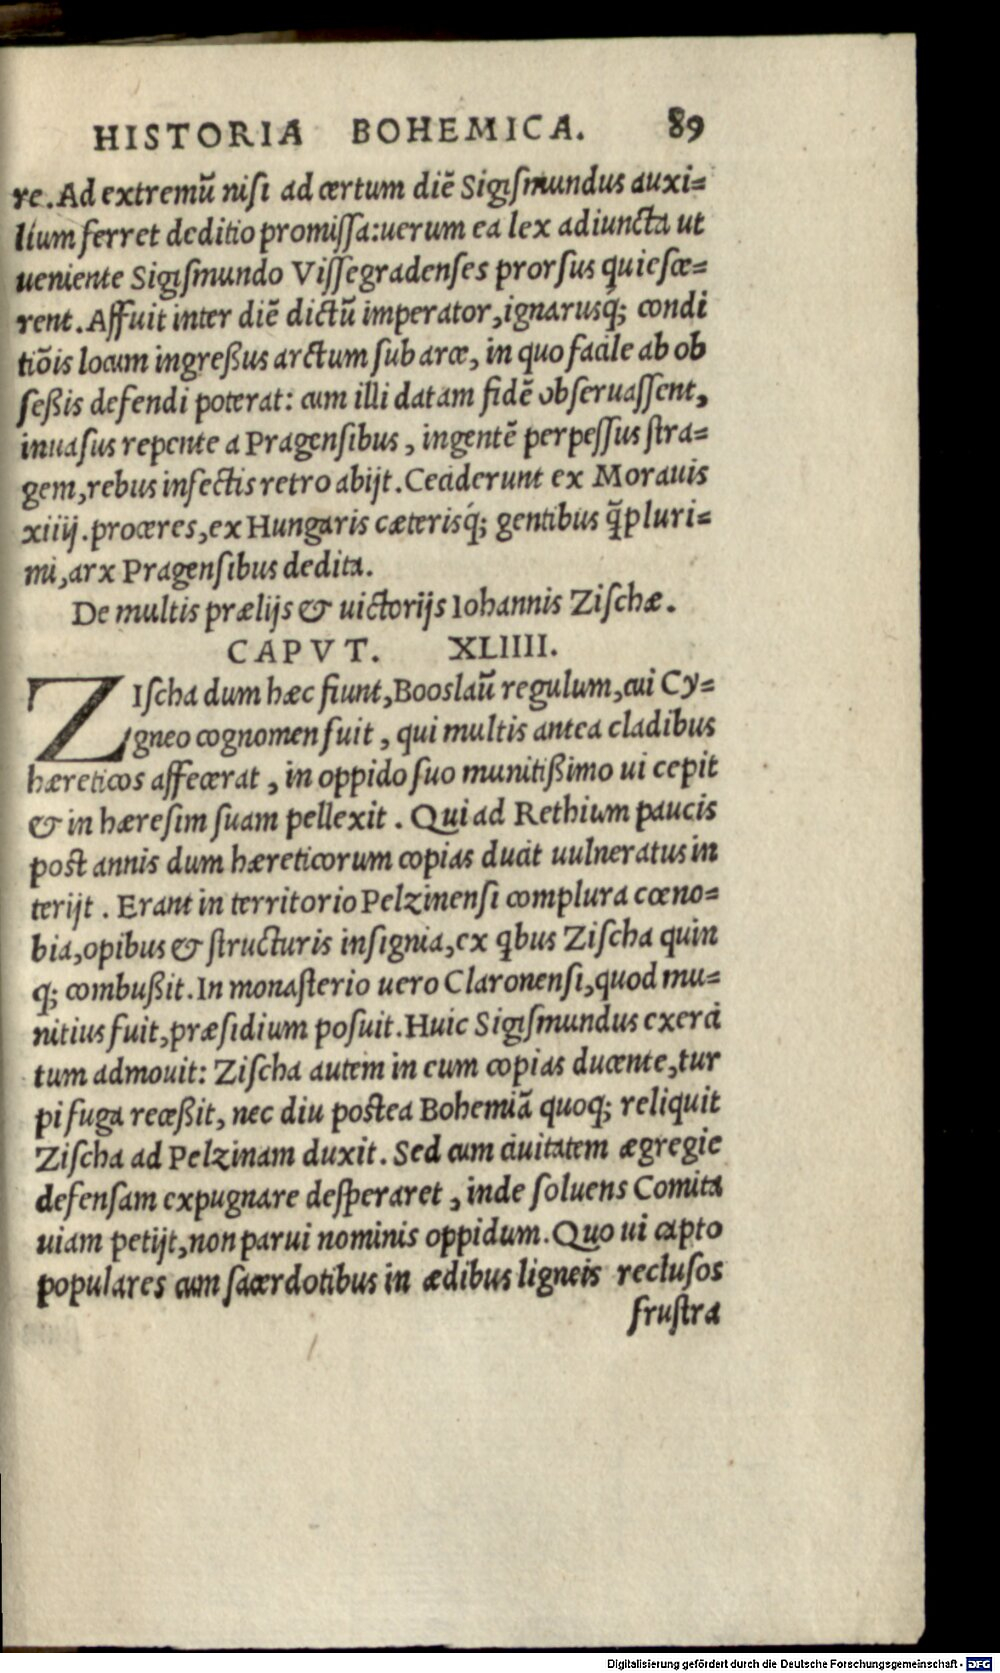 HISTORIA BOHEMICA. 89
re. Ad extremũ nisi ad certum diẽ Sigismundus auxi=
lium ferret deditio promissa: uerum ea lex adiuncta ut
ueniente Sigismundo Vissegradenses prorsus quiesce=
rent. Affuit inter diẽ dictũ imperator, ignarusq́; condi
tiõis locum ingreßus arctum sub arce, in quo facile ab ob
seßis defendi poterat: cum illi datam fidẽ obseruassent,
inuasus repente a Pragensibus, ingentẽ perpessus stra=
gem, rebus infectis retro abijt. Ceciderunt ex Morauis
xiiij. proceres, ex Hungaris cæterisq́; gentibus q̃pluri=
mi, arx Pragensibus dedita.
De multis prælijs & uictorijs Iohannis Zischæ.
CAPVT. XLIIII.
ZIscha dum hæc fiunt, Booslaũ regulum, cui Cy=
gneo cognomen fuit, qui multis antea cladibus
hæreticos affecerat, in oppido suo munitißimo ui cepit
& in hæresim suam pellexit. Qui ad Rethium paucis
post annis dum hæreticorum copias ducit uulneratus in
terijt. Erant in territorio Pelzinensi complura cœno=
bia, opibus & structuris insignia, ex qbus Zischa quin
q; combußit. In monasterio uero Claronensi, quod mu=
nitius fuit, præsidium posuit. Huic Sigismundus exerci
tum admouit: Zischa autem in eum copias ducente, tur
pi fuga receßit, nec diu postea Bohemiã quoq; reliquit
Zischa ad Pelzinam duxit. Sed cum ciuitatem ægregie
defensam expugnare desperaret, inde soluens Comita
uiam petijt, non parui nominis oppidum. Quo ui capto
populares cum sacerdotibus in ædibus ligneis reclusos
frustra
Digitalisierung gefördert durch die Deutsche Forschungsgemeinschaft - DFG